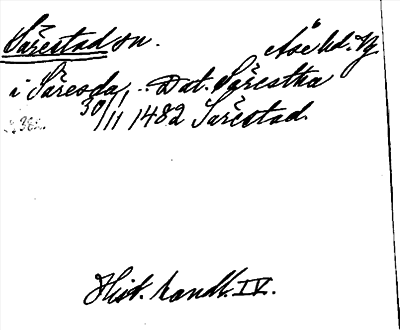 Särestad sn. Åse hd. Vg
i Säresda, .. Dat. Särestha
30/11 1482 Särestad.
Hist. handl. IV.